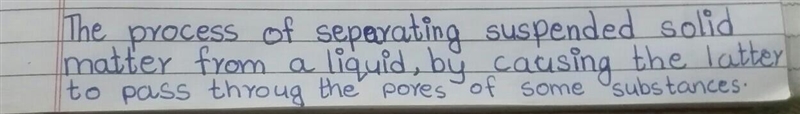 The process of seperating suspended solid
matter from a liquid, by causing the latter
to pass throug the pores of some substances.